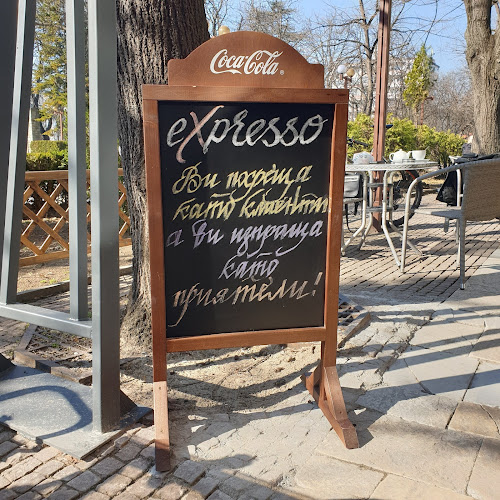 Coca-Cola
eXpresso
Ви посреща
като клиенти
а ви изпраща
като
приятели!